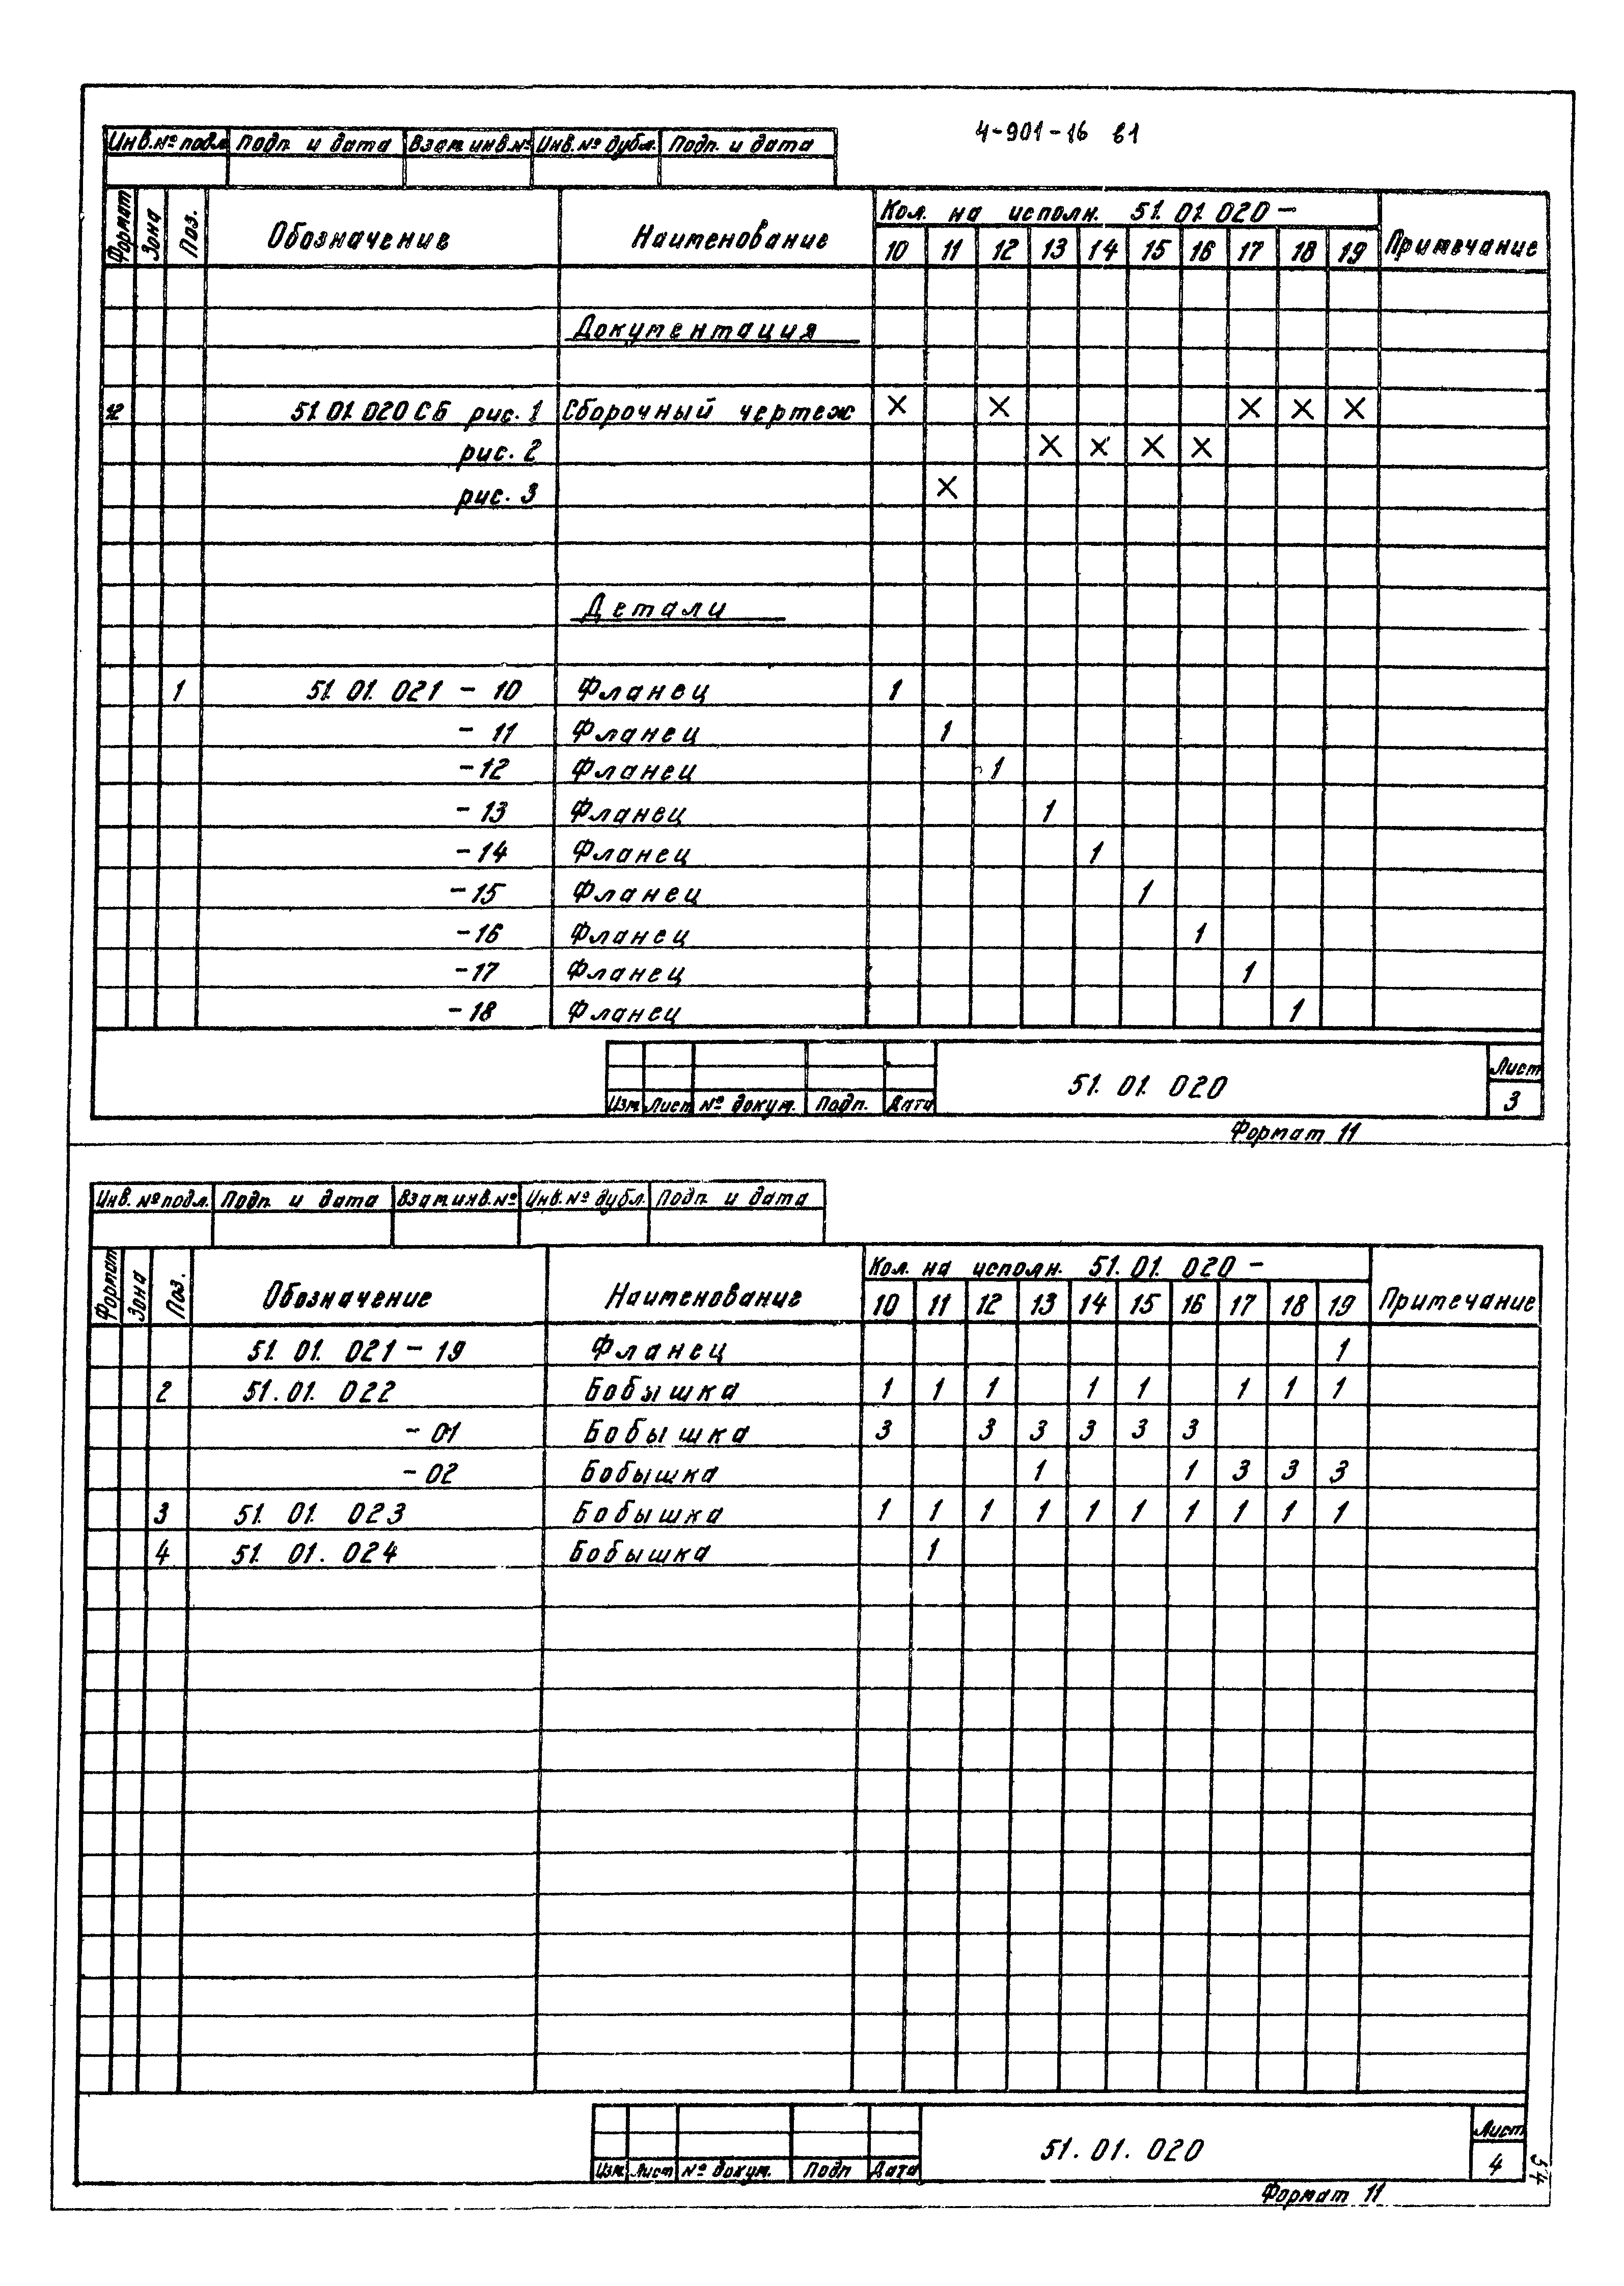 4-901-16 в1
Инв.№ подл. Подп. и дата Взам.инв.№ Инв.№ дубл. Подп. и дата
Формат Зона Поз. Обозначение Наименование Кол. на исполн. 51.01.020- Примечание
10 11 12 13 14 15 16 17 18 19
Документация
12 51.01.020СБ рис. 1 Сборочный чертеж X X X X X
рис. 2 X X X X
рис. 3 X
Детали
1 51.01.021 - 10 Фланец 1
- 11 Фланец 1
- 12 Фланец 1
- 13 Фланец 1
- 14 Фланец 1
- 15 Фланец 1
- 16 Фланец 1
- 17 Фланец 1
- 18 Фланец 1
Изм Лист № докум. Подп. Дата 51.01.020 Лист 3
Формат 11
Инв. № подл. Подп. и дата Взам.инв.№ Инв.№ дубл. Подп. и дата
Формат Зона Поз. Обозначение Наименование Кол. на исполн. 51.01.020 - Примечание
10 11 12 13 14 15 16 17 18 19
51.01.021 - 19 Фланец 1
2 51.01.022 Бобышка 1 1 1 1 1 1 1 1
- 01 Бобышка 3 3 3 3 3 3
- 02 Бобышка 1 1 3 3 3
3 51.01.023 Бобышка 1 1 1 1 1 1 1 1 1 1
4 51.01.024 Бобышка 1
Изм. Лист № докум. Подп Дата 51.01.020 Лист 4
Формат 11
54